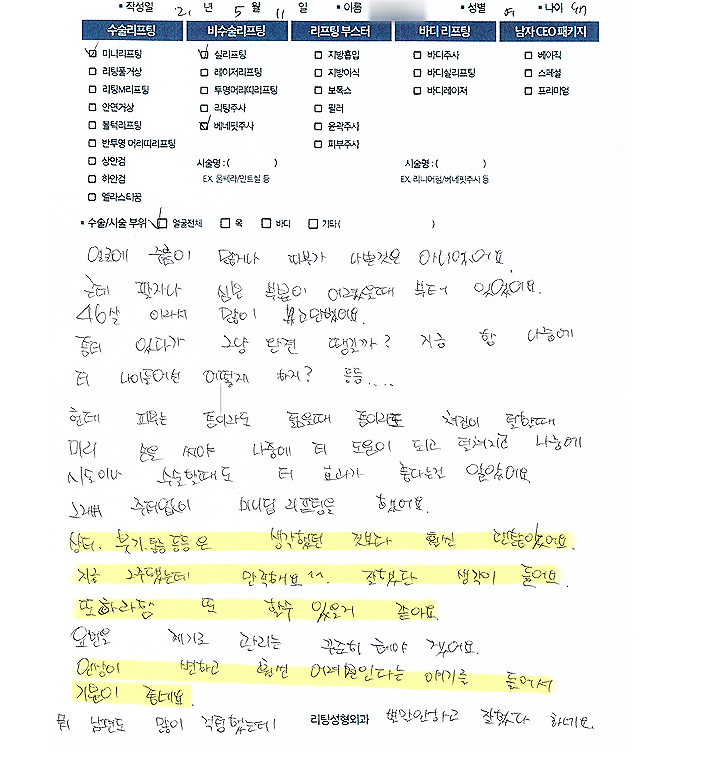 ▪ 작성일 21 년 5 월 11 일 ▪ 이름 ▪ 성별 여 ▪ 나이
수술리프팅 비수술리프팅 리프팅 부스터 바디 리프팅 남자 CEO 패키지
미니리프팅 실리프팅 지방흡입 바디주사 베이직
리팅풀거상 레이저리프팅 지방이식 바디실리프팅 스페셜
리팅M리프팅 투명머리띠리프팅 보톡스 바디레이저 프리미엄
안면거상 리팅주사 필러
볼턱리프팅 베네핏주사 윤곽주사
반투명 머리띠리프팅 피부주사
상안검 시술명 : ( ) 시술명 : ( )
하안검 EX. 울쎄라/민트실 등 EX. 리니어펌/베네핏주사 등
엘라스티꿈
▪ 수술/시술 부위 얼굴전체 목 바디 기타( )
얼굴에 주름이 많거나 피부가 나쁜것은 아니었어요.
근데 팔자나 심은 부분이 어렸을때 부터 있었어요.
46살 이라서 많이
좀더 있다가 그냥 한번 땡길까? 지금 함 나중에
더 나이들어선 어떻게 하지? 등등....
헌데 피부는 한 젊을때 처짐이 덜할때
미리 손을 써야 나중에 더 도움이 되고 덜쳐지고 나중에
시도이나 수술할때도 더 효과가 좋다는건 알았어요.
그래서 주저없이 미니덥 리프팅을 했어요.
상처, 붓기, 통증 등은 생각했던 것보다 훨씬
지금 2주됐는데 만족해요^^. 잘했단 생각이 들어요.
또하라함 또 할수 있을거 같아요.
요번은 제기로 관리는 꾸준히 해야 겠어요.
인상이 변하고 훨씬 어려보인다는 얘기를 들어서
기분이 좋네요.
뭐 남편도 많이 걱정했는데 리팅성형외과 잘했다 하네요.